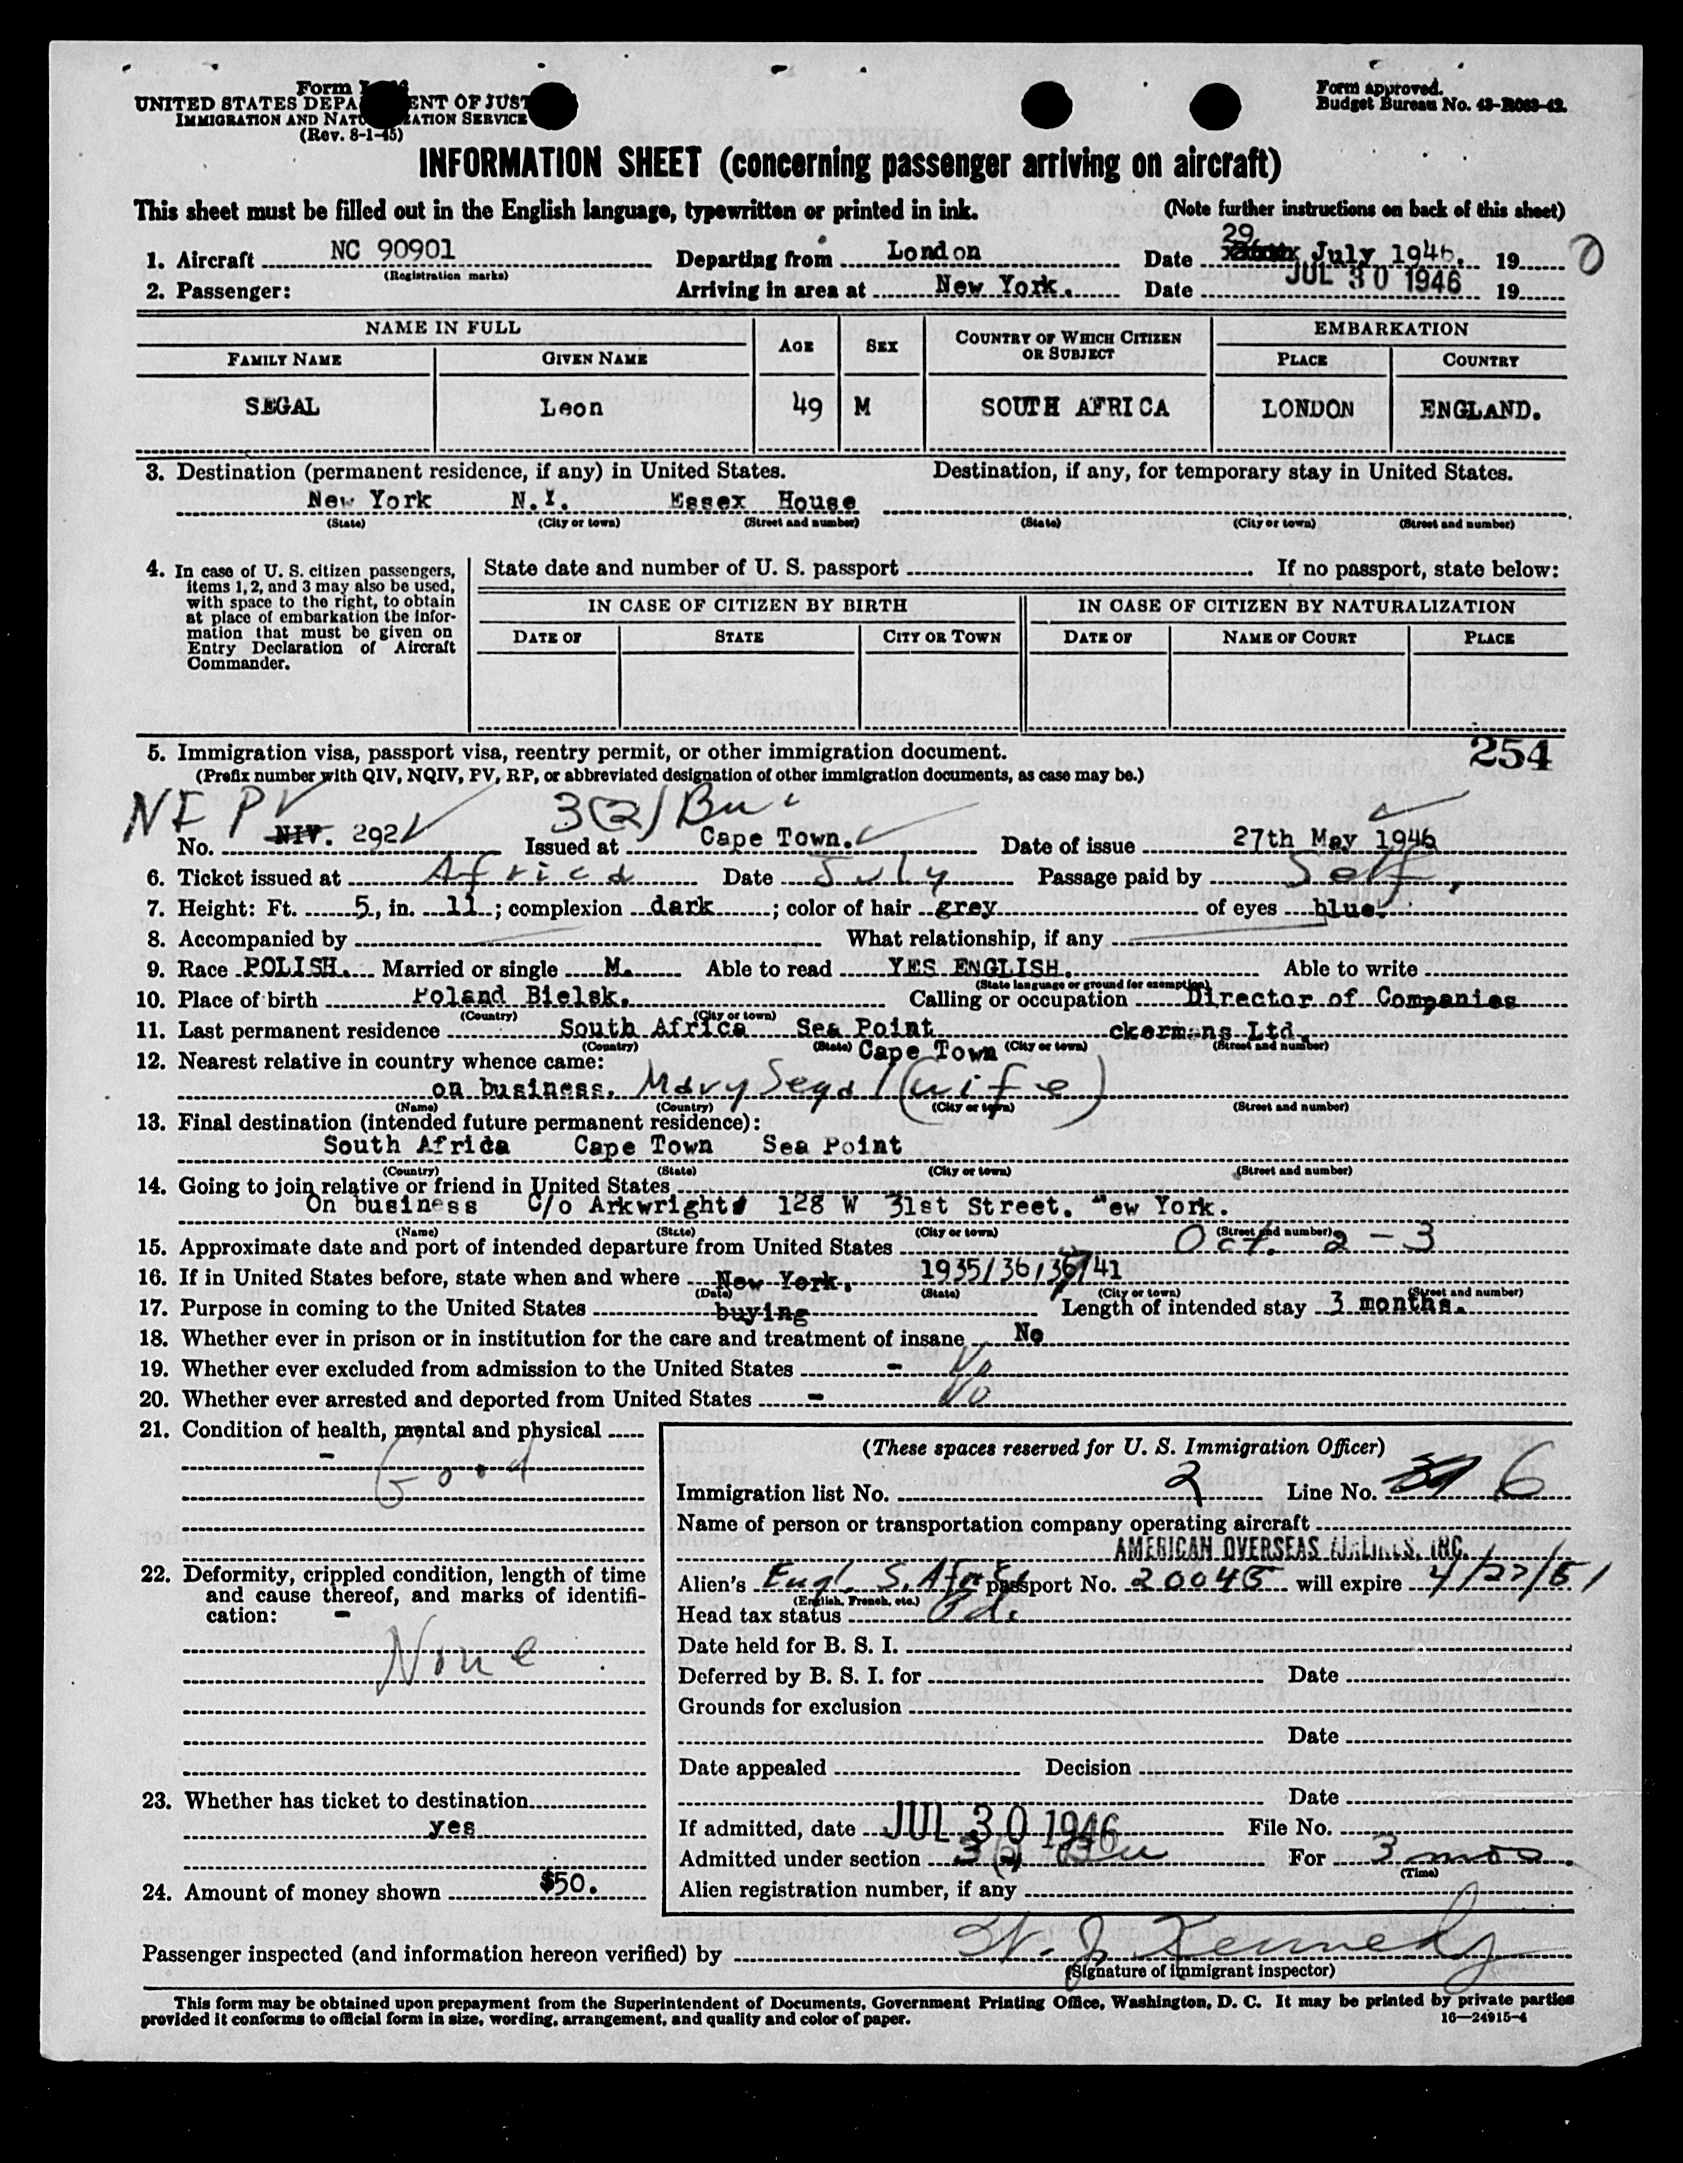 Form
UNITED STATES DEPA ENT OF JUST
IMMIGRATION AND NATU ZATION SERVICE
(Rev. 8-1-45)
Form approved.
Budget Bureau No. 43-R063-42.
INFORMATION SHEET (concerning passenger arriving on aircraft)
This sheet must be filled out in the English language, typewritten or printed in ink. (Note further instructions on back of this sheet)
29
1. Aircraft NC 90901 Departing from London Date July 1946. 19 0
(Registration marks)
2. Passenger: Arriving in area at New York. Date JUL 30 1946 19
NAME IN FULL AGE SEX COUNTRY OF WHICH CITIZEN OR SUBJECT EMBARKATION
FAMILY NAME GIVEN NAME PLACE COUNTRY
SEGAL Leon 49 M SOUTH AFRICA LONDON ENGLAND.
3. Destination (permanent residence, if any) in United States. Destination, if any, for temporary stay in United States.
New York N.Y. Essex House
(State) (City or town) (Street and number) (State) (City or town) (Street and number)
4. In case of U. S. citizen passengers, items 1, 2, and 3 may also be used, with space to the right, to obtain at place of embarkation the information that must be given on Entry Declaration of Aircraft Commander.
State date and number of U. S. passport If no passport, state below:
IN CASE OF CITIZEN BY BIRTH IN CASE OF CITIZEN BY NATURALIZATION
DATE OF STATE CITY OR TOWN DATE OF NAME OF COURT PLACE
5. Immigration visa, passport visa, reentry permit, or other immigration document. 254
(Prefix number with QIV, NQIV, PV, RP, or abbreviated designation of other immigration documents, as case may be.)
PV 3(2) Bu
No. NIV. 292 Issued at Cape Town. Date of issue 27th May 1946
6. Ticket issued at Africa Date July Passage paid by Self
7. Height: Ft. 5, in. 11; complexion dark; color of hair grey of eyes blue.
8. Accompanied by What relationship, if any
9. Race POLISH. Married or single M. Able to read YES ENGLISH. Able to write
(State language or ground for exemption)
10. Place of birth Poland Bielsk. Calling or occupation Director of Companies
(Country) (City or town)
11. Last permanent residence South Africa Sea Point ckermans Ltd.
(Country) (State) Cape Town (City or town) (Street and number)
12. Nearest relative in country whence came:
on business. Mary Segal (wife)
(Name) (Country) (City or town) (Street and number)
13. Final destination (intended future permanent residence):
South Africa Cape Town Sea Point
(Country) (State) (City or town) (Street and number)
14. Going to join relative or friend in United States
On business C/o Arkwright 128 W 31st Street. New York.
(Name) (State) (City or town) (Street and number)
15. Approximate date and port of intended departure from United States Oct. 2 - 3
16. If in United States before, state when and where New York. 1935/36/37/41
(Date) (State) (City or town) (Street and number)
17. Purpose in coming to the United States buying Length of intended stay 3 months.
18. Whether ever in prison or in institution for the care and treatment of insane No
19. Whether ever excluded from admission to the United States - No
20. Whether ever arrested and deported from United States - No
21. Condition of health, mental and physical
- Good
22. Deformity, crippled condition, length of time and cause thereof, and marks of identification: -
None
23. Whether has ticket to destination
yes
24. Amount of money shown $50.
(These spaces reserved for U. S. Immigration Officer)
Immigration list No. 2 Line No. 6
Name of person or transportation company operating aircraft
AMERICAN OVERSEAS AIRLINES, INC.
Alien's Engl. S. Afr. passport No. 20045 will expire 4/27/51
(English, French, etc.)
Head tax status Pd.
Date held for B. S. I.
Deferred by B. S. I. for Date
Grounds for exclusion
Date
Date appealed Decision
Date
If admitted, date JUL 30 1946 File No.
Admitted under section 3(2) Bu For 3 mos.
(Time)
Alien registration number, if any
Passenger inspected (and information hereon verified) by W. J. Kennedy
(Signature of immigrant inspector)
This form may be obtained upon prepayment from the Superintendent of Documents, Government Printing Office, Washington, D. C. It may be printed by private parties
provided it conforms to official form in size, wording, arrangement, and quality and color of paper. 16—24915-4